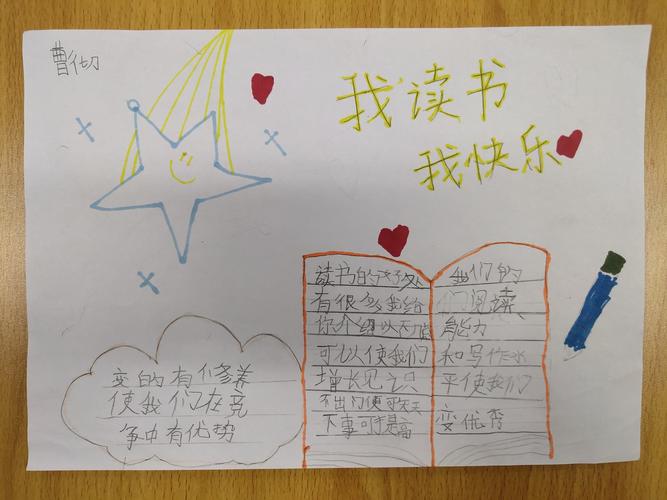 曹彻
我读书
我快乐
读书的好处
有很多我给
你介绍以下
可以使我们
增长见识
不出门便可知天
下事可提高
我们的
阅读
能力
和写作水
平使我们
变优秀
变的有修养
使我们在竞
争中有优势